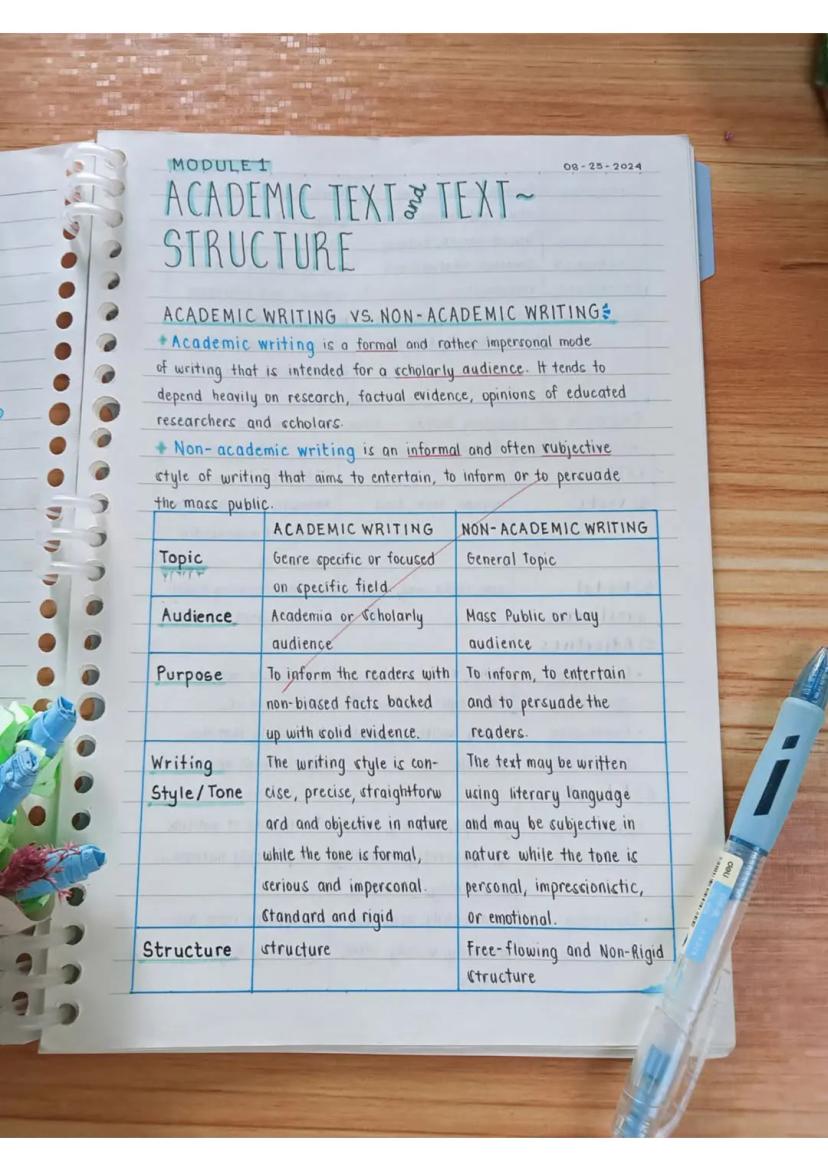 MODULE 1
08-25-2024
ACADEMIC TEXT and TEXT~
STRUCTURE
ACADEMIC WRITING VS. NON-ACADEMIC WRITING
+ Academic writing is a formal and rather impersonal mode
of writing that is intended for a scholarly audience. It tends to
depend heavily on research, factual evidence, opinions of educated
researchers and scholars.
+ Non-academic writing is an informal and often subjective
style of writing that aims to entertain, to inform or to persuade
the mass public.
ACADEMIC WRITING
NON-ACADEMIC WRITING
Topic
Genre specific or focused
on specific field.
General Topic
Audience
Academia or Scholarly
audience
Mass Public or Lay
audience
Purpose
To inform the readers with
non-biased facts backed
up with solid evidence.
To inform, to entertain
and to persuade the
readers.
Writing
Style/Tone
The writing style is con-
cise, precise, straightforw
ard and objective in nature
while the tone is formal,
serious and impersonal.
Standard and rigid
The text may be written
using literary language
and may be subjective in
nature while the tone is
personal, impressionistic,
or emotional.
Structure
structure
Free-flowing and Non-Rigid
structure
deli